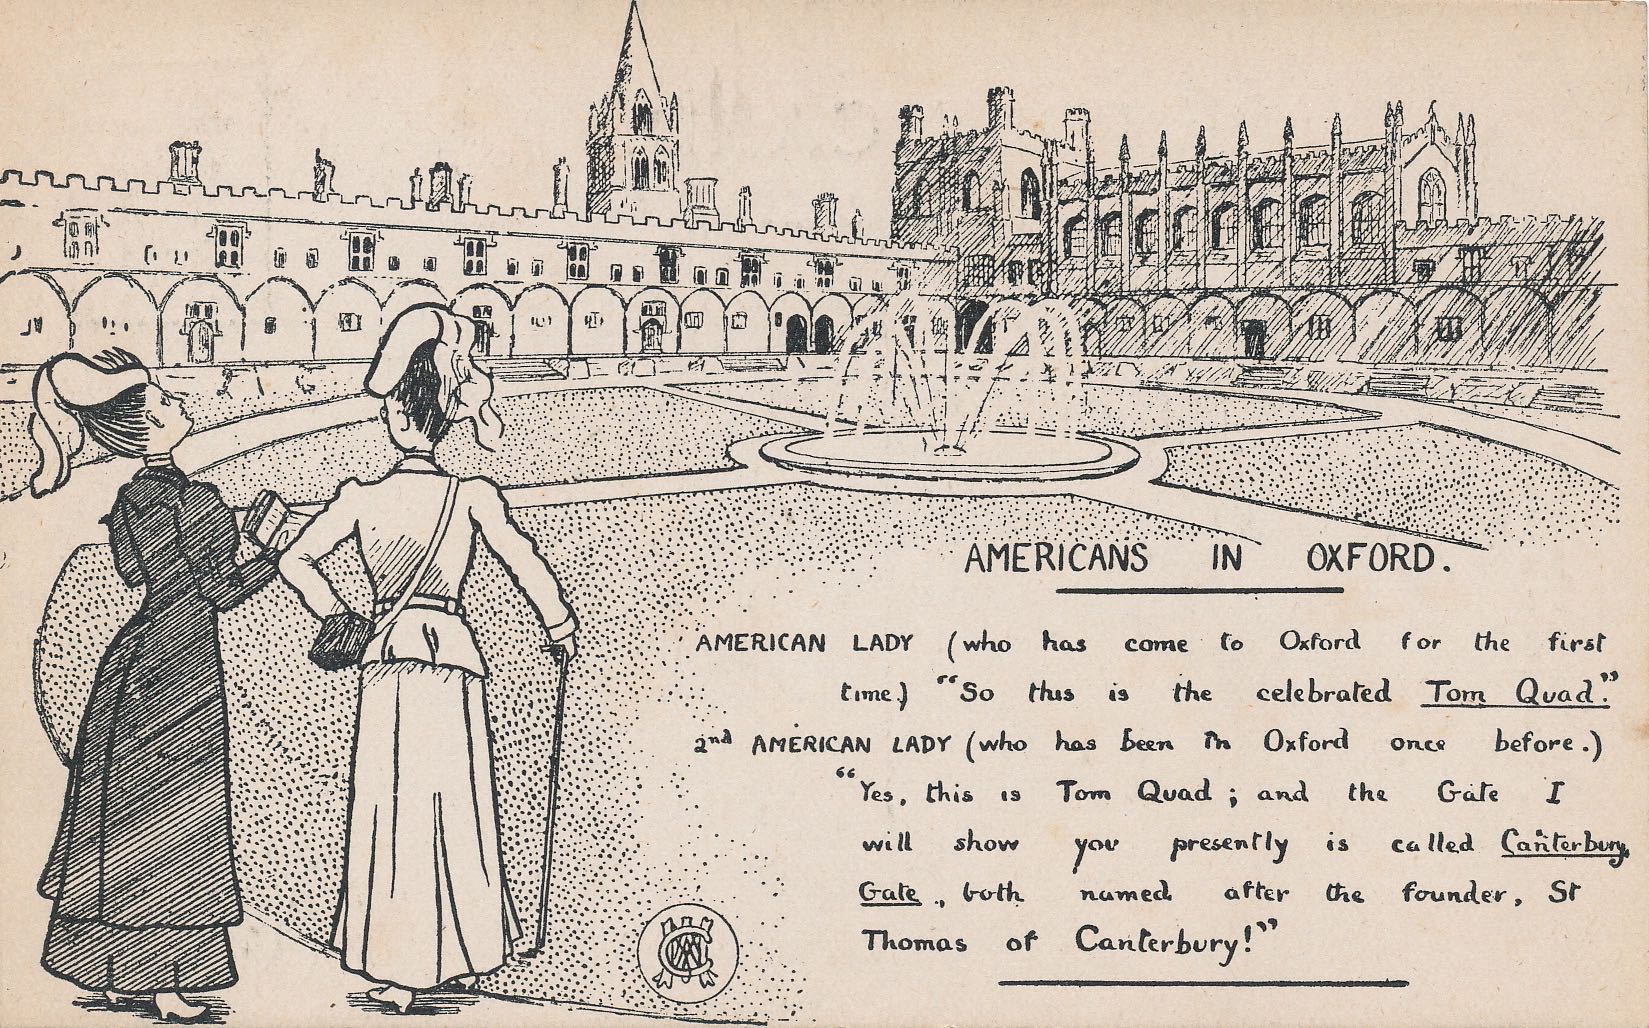 AMERICANS IN OXFORD.
AMERICAN LADY (who has come to Oxford for the first
time) "So this is the celebrated Tom Quad."
2nd AMERICAN LADY (who has been in Oxford once before.)
"Yes, this is Tom Quad; and the Gate I
will show you presently is called Canterbury
Gate, both named after the founder, St
Thomas of Canterbury!"